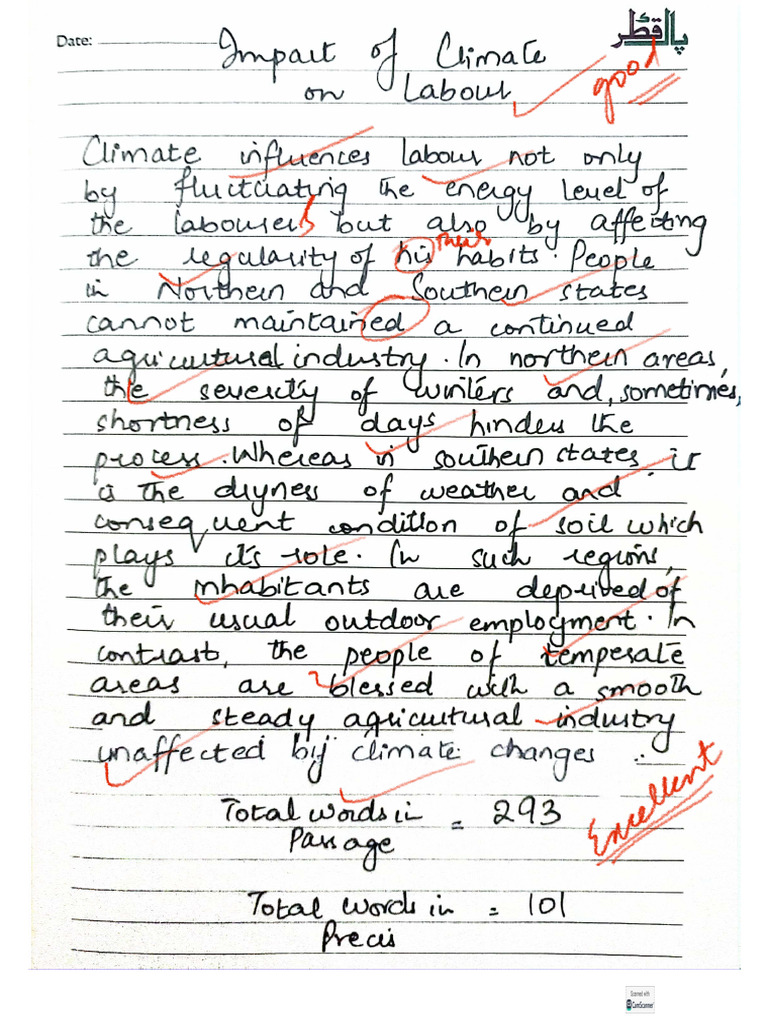 Date:
پاک قطر
Impact of Climate
on Labour
good
Climate influences labour not only
by fluctuating the energy level of
the labourers but also by affecting
their
the regularity of his habits. People
in Northern and Southern states
cannot maintained a continued
agricultural industry. In northern areas,
the severity of winters and, sometimes,
shortness of days hinders the
process. Whereas in southern states, it
is the dryness of weather and
consequent condition of soil which
plays its role. In such regions,
the inhabitants are deprived of
their usual outdoor employment. In
contrast, the people of temperate
areas are blessed with a smooth
and steady agricultural industry
unaffected by climate changes.
Excellent
Total words in = 293
Passage
Total words in = 101
Precis
Scanned with
CamScanner